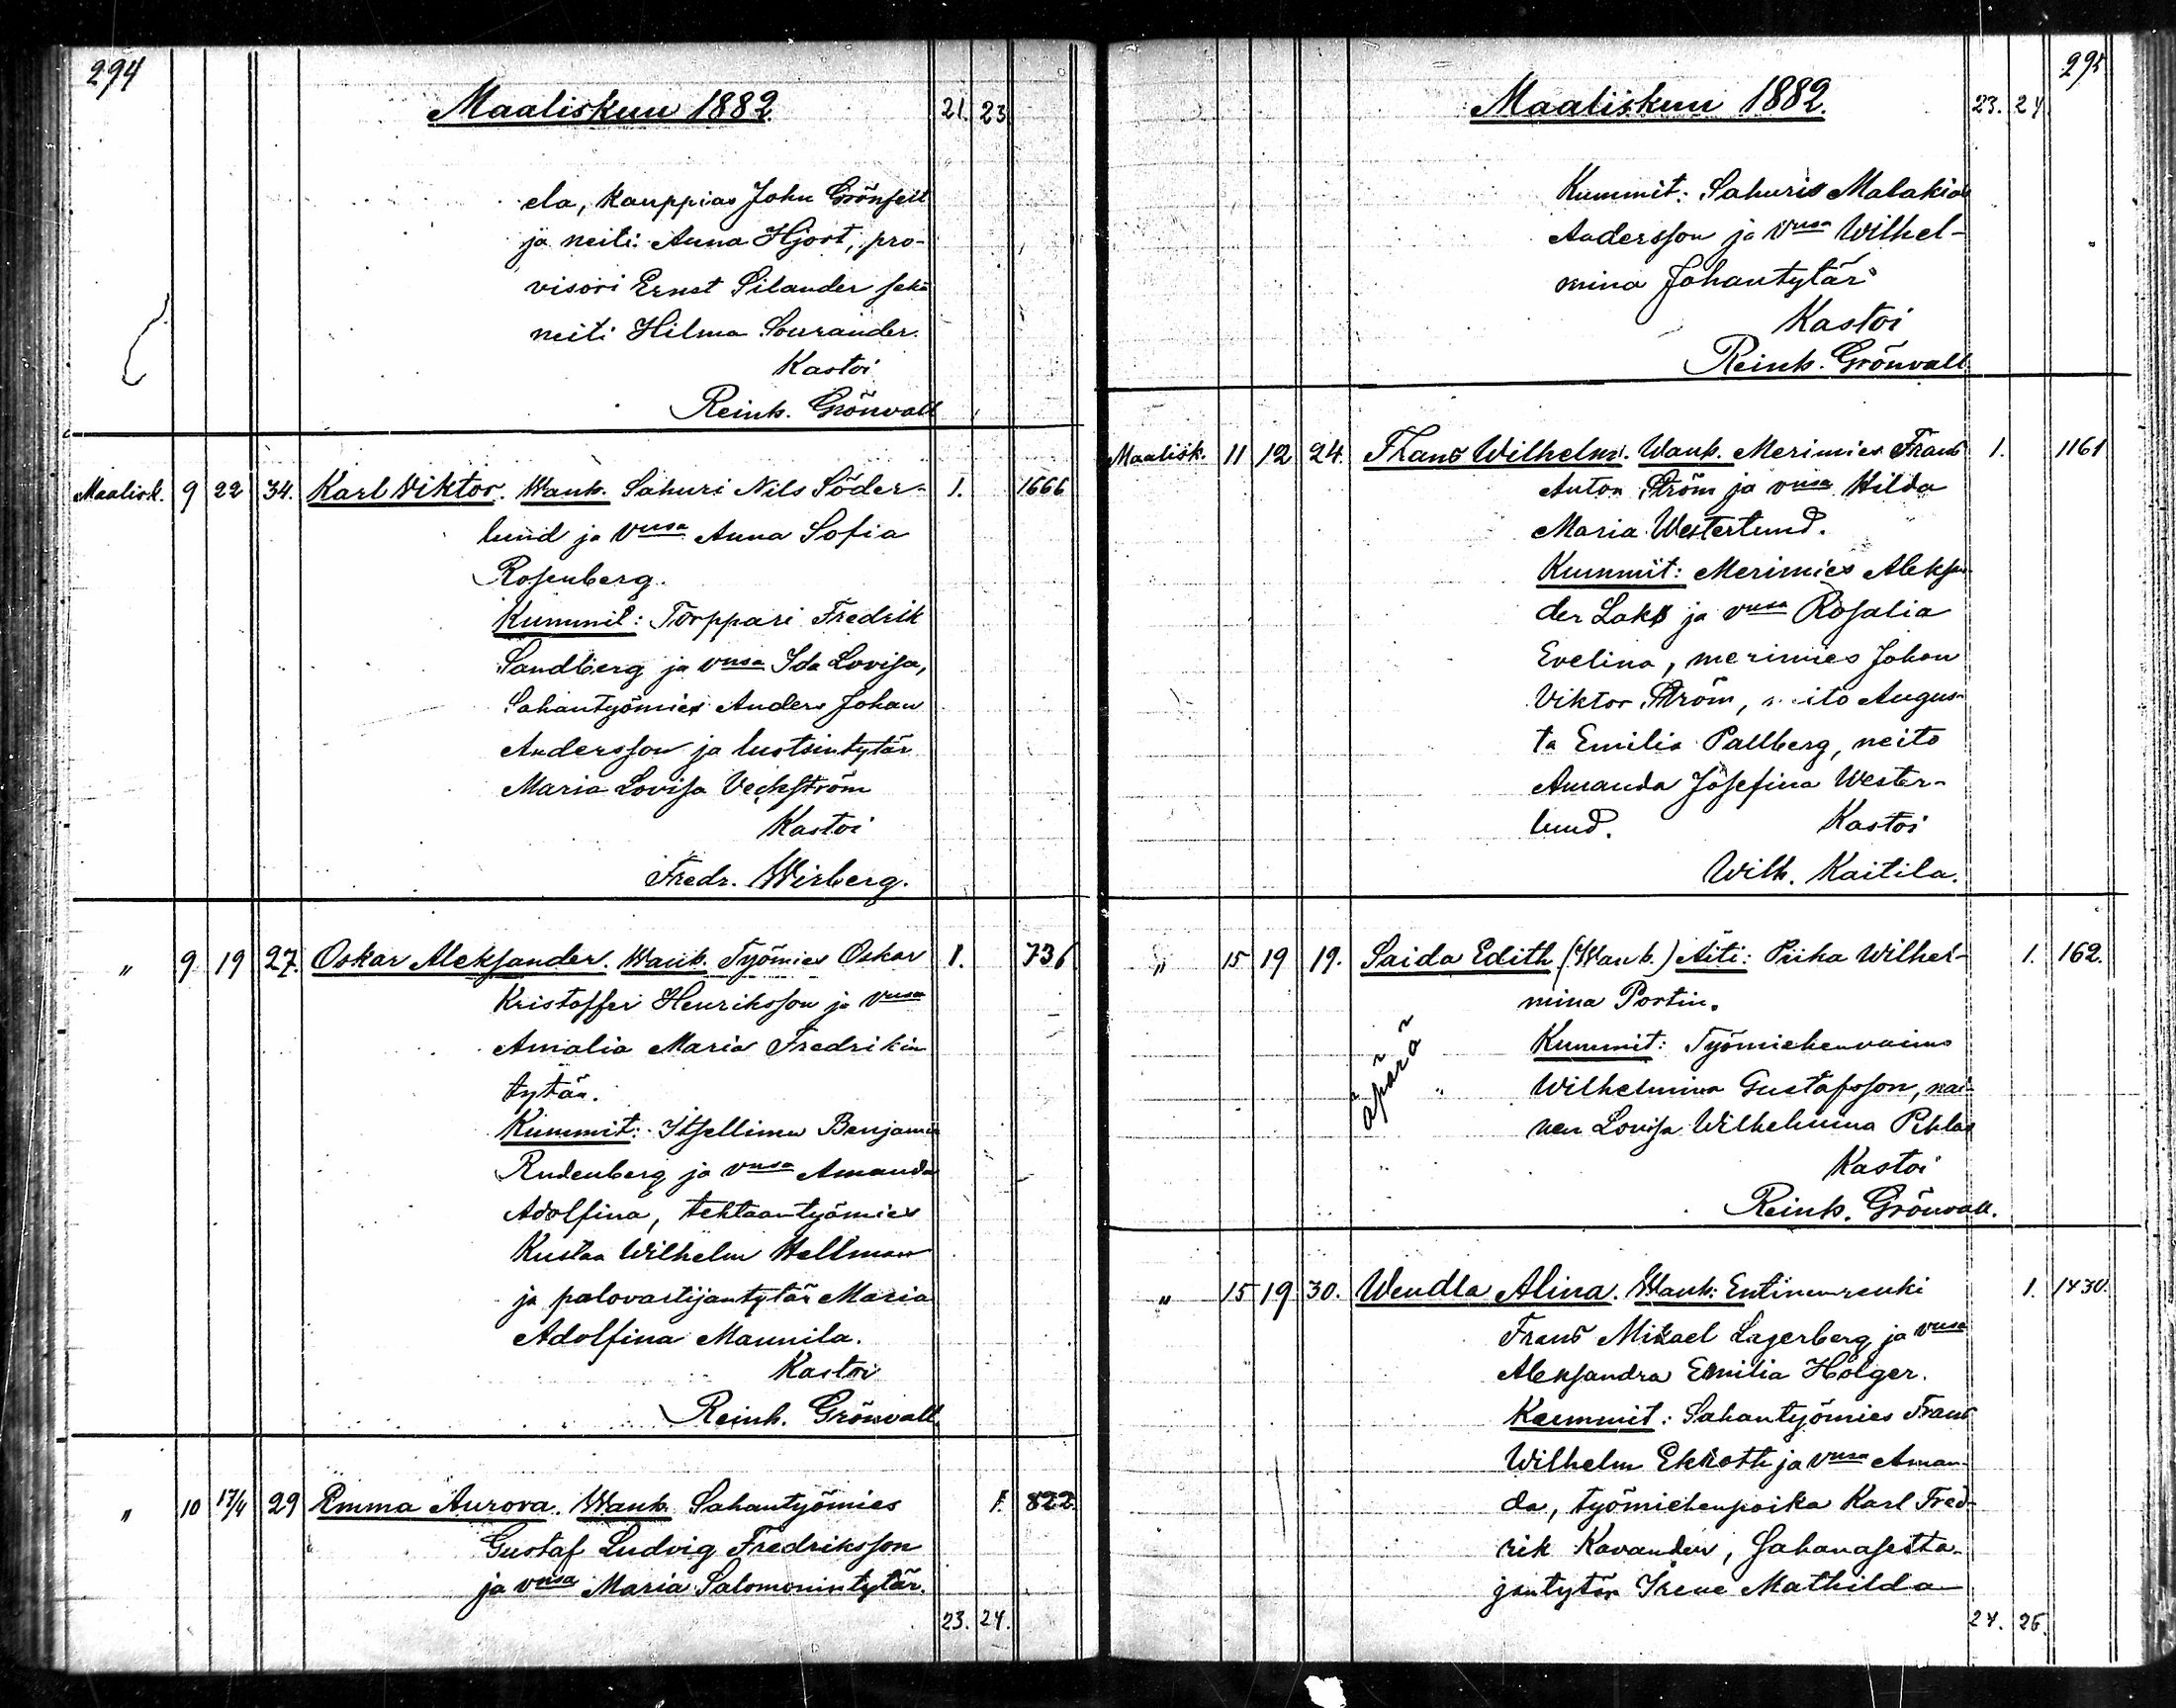 294
Maaliskuu 1882. 21. 23
ela, kauppias John Grönfelt
ja neiti Anna Hjort, pro-
visori Ernst Silander sekä
neiti Hilma Sourander.
Kastoi
Reinh. Grönvall
Maalisk. 9 22 34. Karl Viktor. Wanh. Sahuri Nils Söder- 1. 1666
lund ja vmsa Anna Sofia
Rosenberg.
Kummit: Torppari Fredrik
Sandberg ja vmsa Ida Lovisa,
Sahantyömies Anders Johan
Andersson ja luotsintytär
Maria Lovisa Veckström
Kastoi
Fredr. Wirberg.
" 9 19 27. Oskar Aleksander. Wanh. Työmies Oskar 1. 736
Kristoffer Henriksson ja vmsa
Amalia Maria Fredrikin
tytär.
Kummit: Itsellinen Benjamin
Rudenberg ja vmsa Amanda
Adolfina, tehtaantyömies
Kustaa Wilhelm Hellman
ja palovartijantytär Maria
Adolfina Mannila.
Kastoi
Reinh. Grönvall.
" 10 17/4 29 Emma Aurora. Wanh. Sahantyömies 1. 822
Gustaf Ludvig Fredriksson
ja vmsa Maria Salomonintytär.
23. 24.
295
Maaliskuu 1882. 23. 24
Kummit: Sahuris Malakias
Andersson ja vmsa Wilhel-
mina Johantytär
Kastoi
Reinh. Grönvall
Maalisk. 11 12 24. Frans Wilhelm. Wanh. Merimies Frans 1. 1161
Anton Ström ja vmsa Hilda
Maria Westerlund.
Kummit: Merimies Aleksan-
der Laks ja vmsa Rosalia
Evelina, merimies Johan
Viktor Ström, neito Augus-
ta Emilia Pallberg, neito
Amanda Josefina Wester-
lund. Kastoi
Wilh. Kaitila.
" 15 19 19. Saida Edith (Wanh.) Äiti: Piika Wilhel- 1. 162.
mina Portin.
äpärä
Kummit: Työmiehenvaimo
Wilhelmina Gustafsson, nai-
nen Lovisa Wilhelmina Pihlas
Kastoi
Reinh. Grönvall.
" 15 19 30. Wendla Alina. Wanh: Entinen renki 1. 1430.
Frans Mikael Lagerberg ja vmsa
Aleksandra Emilia Holger.
Kummit: Sahantyömies Frans
Wilhelm Ekroth ja vmsa Aman-
da, työmiehenpoika Karl Fred-
rik Kavander, Sahanasetta-
jantytär Irene Mathilda
24. 25.